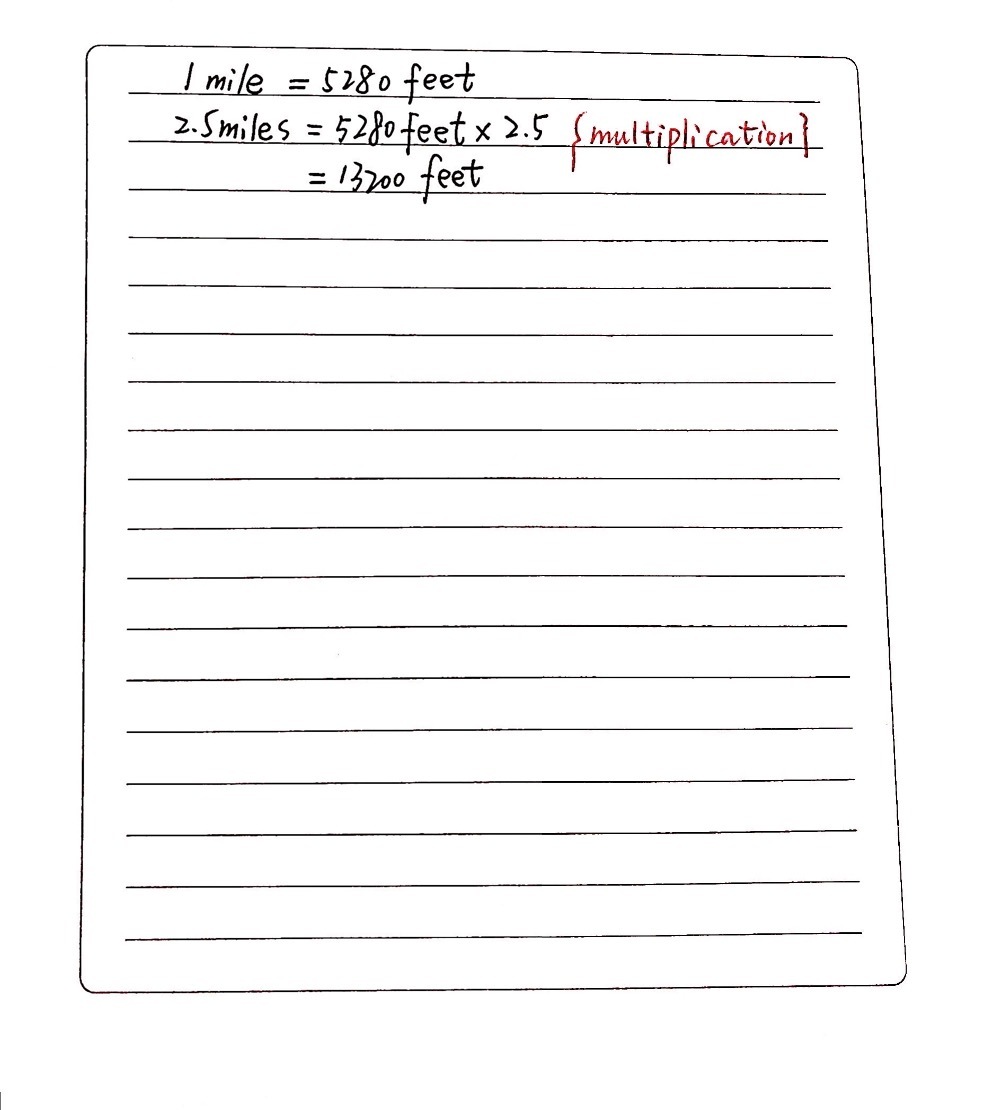 1 mile = 5280 feet
2.5 miles = 5280 feet × 2.5 {multiplication}
= 13200 feet